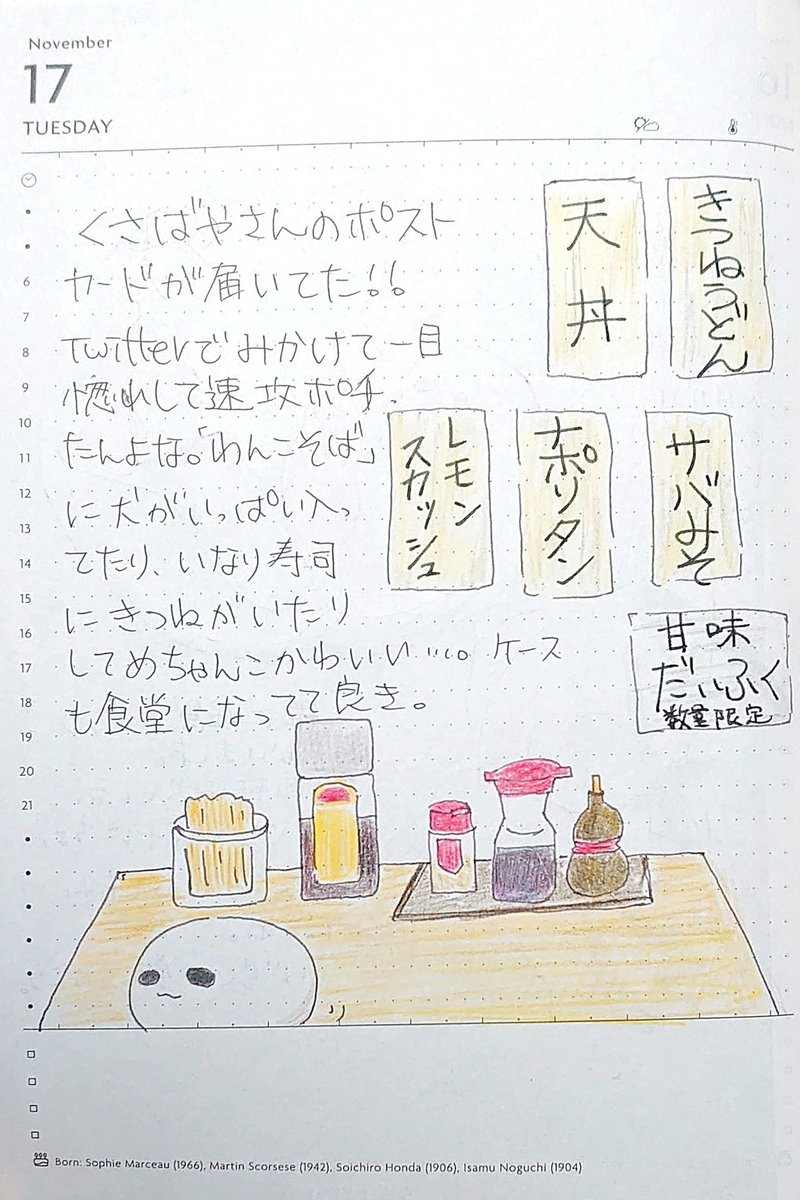 November
17
TUESDAY
くさばやさんのポスト
カードが届いてた!!
Twitterでみかけて一目
惚れして速攻ポチ.
たんよな。「わんこそば」
に犬がいっぱい入っ
てたり、いなり寿司
にきつねがいたり
してめちゃんこかわいい…。ケース
も食堂になってて良き。
きつねうどん
天丼
サバみそ
ナポリタン
レモン
スカッシュ
甘味
だいふく
数量限定
6
7
8
9
10
11
12
13
14
15
16
17
18
19
20
21
Born: Sophie Marceau (1966), Martin Scorsese (1942), Soichiro Honda (1906), Isamu Noguchi (1904)